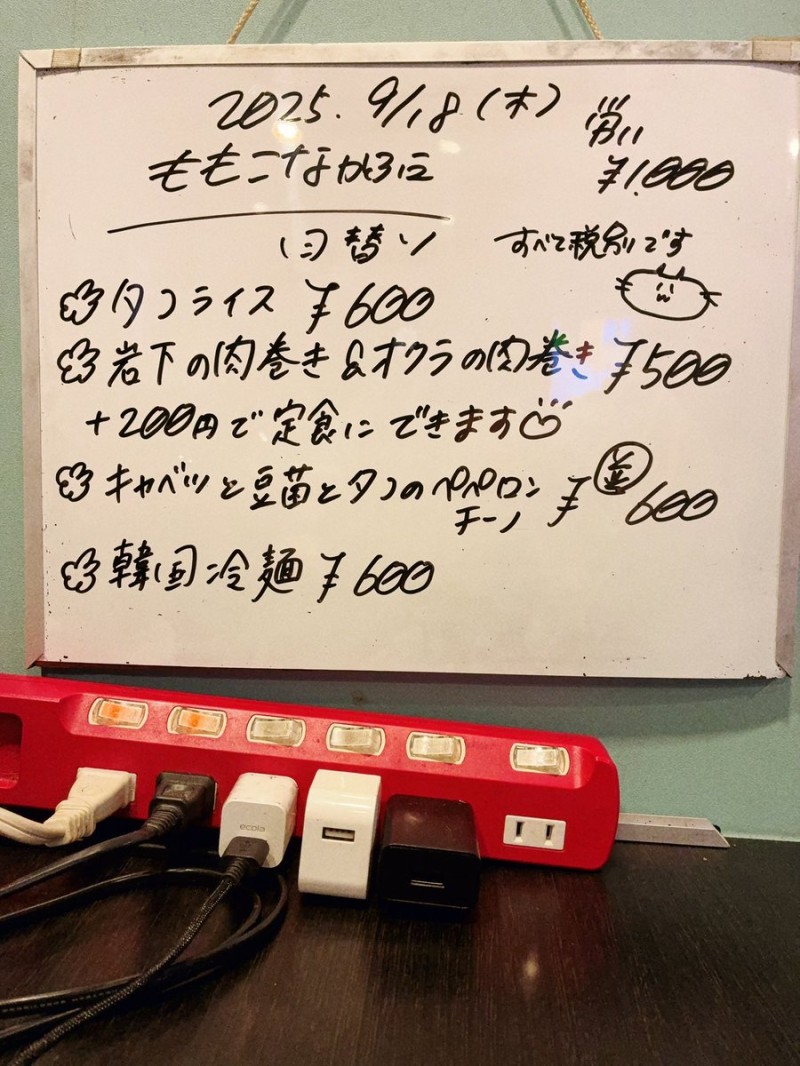 2025. 9/18(木)
ももこなかろに
¥1,000
日替り
すべて税別です
タコライス ¥600
岩下の肉巻き&オクラの肉巻き ¥500
+200円で定食にできます
キャベツと豆苗とタコのペペロンチーノ ¥600
韓国冷麺 ¥600
ecola